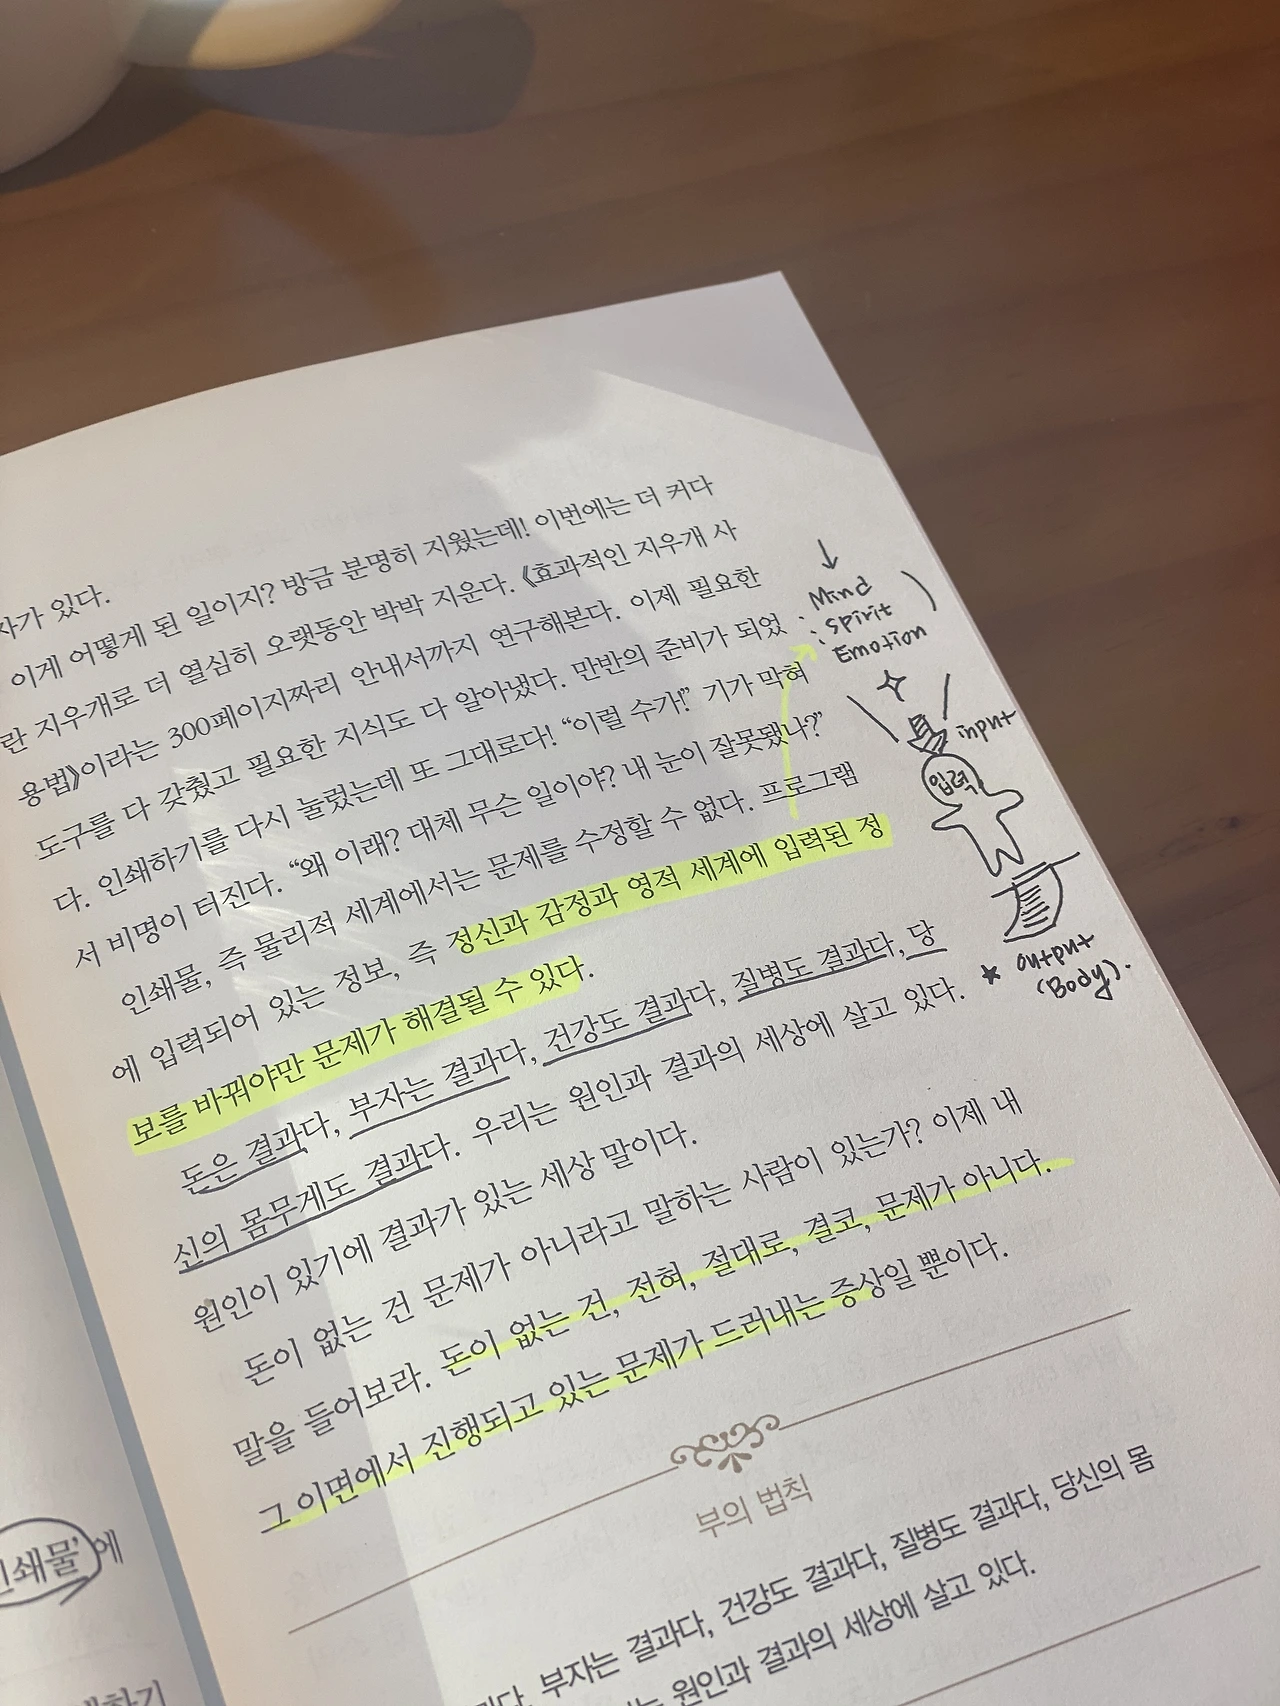 자가 있다.
이게 어떻게 된 일이지? 방금 분명히 지웠는데! 이번에는 더 커다
란 지우개로 더 열심히 오랫동안 박박 지운다. 《효과적인 지우개 사
용법》이라는 300페이지짜리 안내서까지 연구해본다. 이제 필요한
도구를 다 갖췄고 필요한 지식도 다 알아냈다. 만반의 준비가 되었
다. 인쇄하기를 다시 눌렀는데 또 그대로다! “이럴 수가!” 기가 막혀
서 비명이 터진다. “왜 이래? 대체 무슨 일이야? 내 눈이 잘못됐나?”
인쇄물, 즉 물리적 세계에서는 문제를 수정할 수 없다. 프로그램
에 입력되어 있는 정보, 즉 정신과 감정과 영적 세계에 입력된 정
보를 바꿔야만 문제가 해결될 수 있다.
돈은 결과다, 부자는 결과다, 건강도 결과다, 질병도 결과다, 당
신의 몸무게도 결과다. 우리는 원인과 결과의 세상에 살고 있다.
원인이 있기에 결과가 있는 세상 말이다.
돈이 없는 건 문제가 아니라고 말하는 사람이 있는가? 이제 내
말을 들어보라. 돈이 없는 건, 전혀, 절대로, 결코, 문제가 아니다.
그 이면에서 진행되고 있는 문제가 드러내는 증상일 뿐이다.
부의 법칙
부자는 결과다, 건강도 결과다, 질병도 결과다, 당신의 몸
원인과 결과의 세상에 살고 있다.
Mind
Spirit
Emotion
input
입력
★ output
(Body).
인쇄물’에